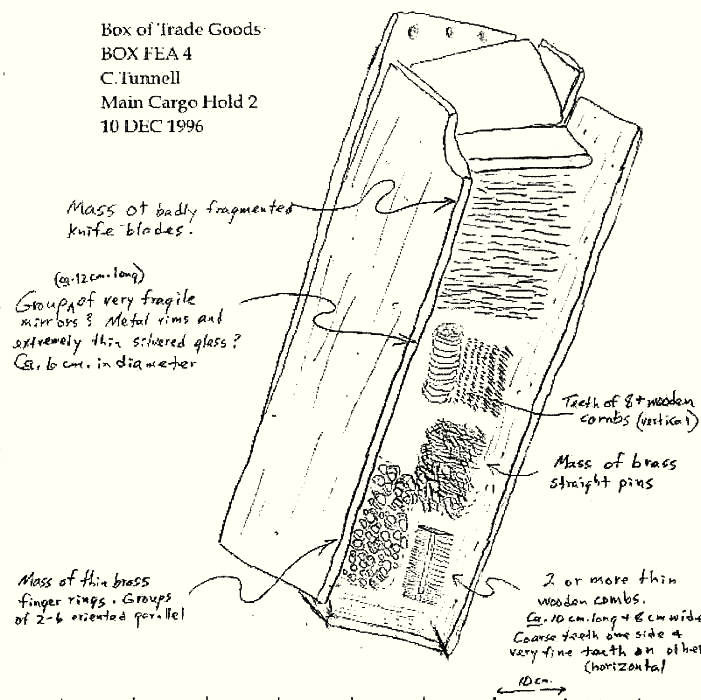 Box of Trade Goods
BOX FEA 4
C.Tunnell
Main Cargo Hold 2
10 DEC 1996
Mass of badly fragmented
knife blades.
(ca. 12 cm. long)
Group of very fragile
mirrors? Metal rims and
extremely thin silvered glass?
Ca. 6 cm. in diameter
Teeth of 8+ wooden
combs (vertical)
Mass of brass
straight pins
Mass of thin brass
finger rings. Groups
of 2-6 oriented parallel
2 or more thin
wooden combs.
Ca. 10 cm. long + 8 cm wide
Coarse teeth one side +
very fine teeth on other
(horizontal
10 cm.